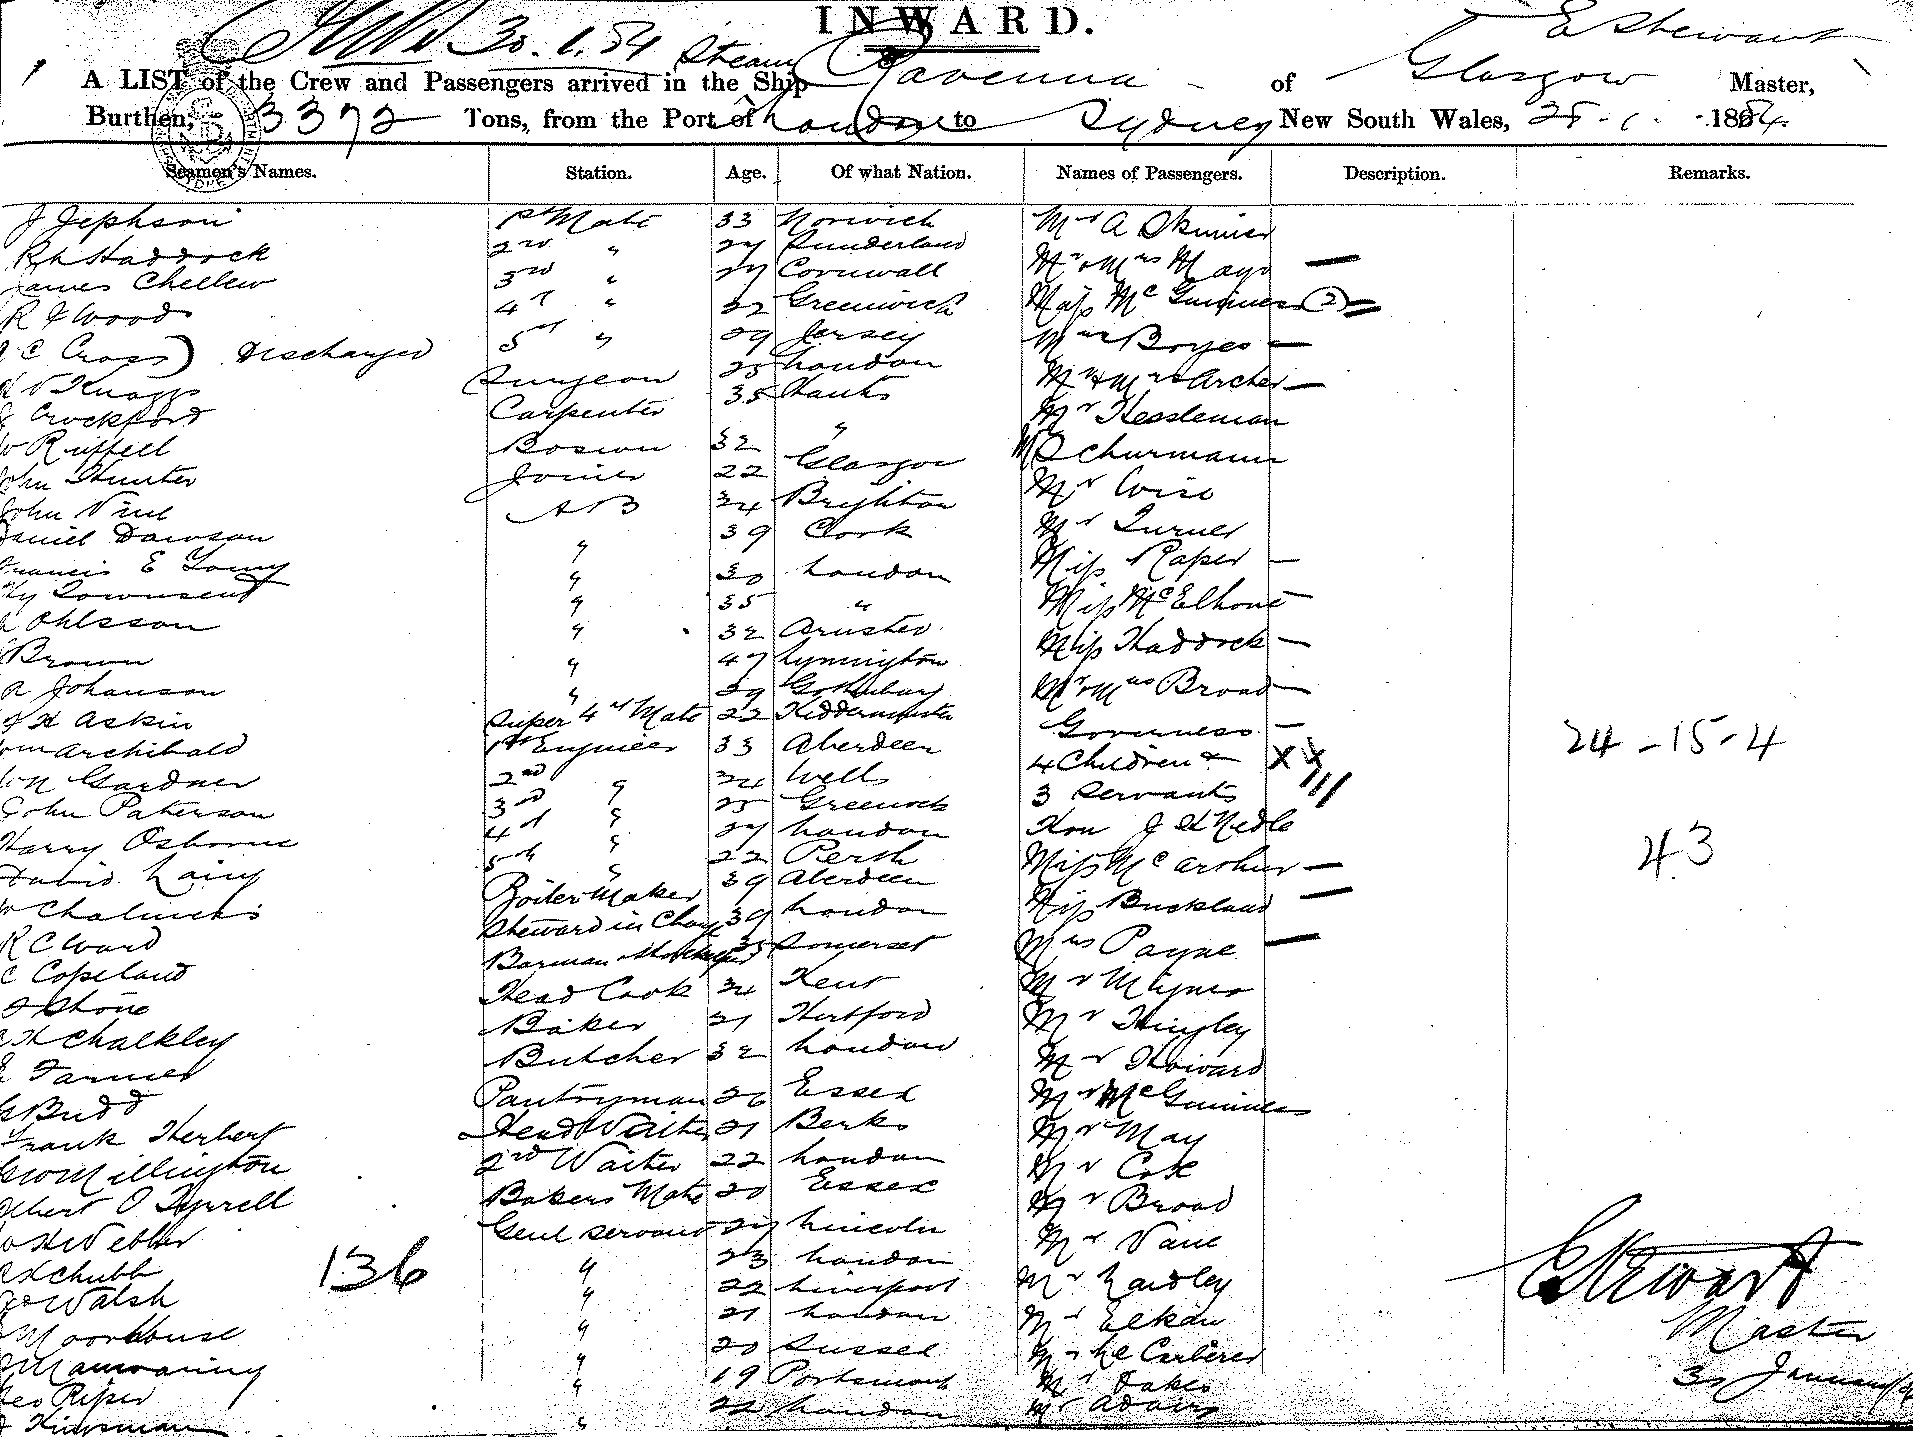 INWARD.
30.1.84 Steam E Stewart
A LIST of the Crew and Passengers arrived in the Ship Ravenna of Glasgow Master,
Burthen, 3372 Tons, from the Port of London to Sydney New South Wales, 28.1.1884.
Seamen's Names. Station. Age. Of what Nation. Names of Passengers. Description. Remarks.
J Jephson 1st Mate 33 Norwich Mr A Skinner
Haddock 2nd " 27 Sunderland Mr & Mrs Mayo —
James Chellew 3rd " 27 Cornwall Miss McGuinness (2)
R J Wood 4th " 22 Greenwich Miss Boyes —
C Cross) Discharged 5th " 29 Jersey Mr & Mrs Archer —
Knaggs Surgeon 25 London Mr Kessleman
Crockford Carpenter 35 Hants Schurmann
Ruffell Bosun 32 " Mr Wise
John Hunter Joiner 22 Glasgow Mr Turner
John Vine AB 34 Brighton Miss Raper —
Daniel Dawson " 39 Cork Miss McElhone —
Francis E Young " 30 London Miss Haddock —
Hy Townsend " 35 " Mr & Mrs Broad —
Ohlsson " 32 Governess —
Brown " 47 Lymington 4 Children &
A Johanson " 29 3 Servants
J H Askin Super 4th Mate 22 Kidderminster Hon J
Wm Archibald 1st Engineer 33 Aberdeen Miss McArthur — 24-15-4
W N Gardner 2nd " 34 Wells Miss Buckland —
John Paterson 3rd " 25 Greenock Mrs Payne —
Harry Osborne 4th " 27 London 43
David Laing 5th " 22 Perth Mr Hingley
W Chalmers Boiler Maker 39 Aberdeen Mr Howard
R C Ward Steward in Charge 39 London Mr McGuinness
C Copeland Barman 35 Somerset Mr May
J Shone Head Cook 34 Kent Mr Cox
H Chalkley Baker 21 Hertford Mr Broad
E Farmer Butcher 32 London Mr Vane
Budd Pantryman 26 Essex Mr Landley
Frank Herbert Head Waiter 21 Berks Mr Elkan
Geo Millington 2nd Waiter 22 London
Albert O Tyrrell Bakers Mate 20 Essex Mr Oakes
H Webber Genl Servant 27 Lincoln Mr Adams
H Chubb " 23 London
136
Geo Walsh " 22 Liverpool
Moorhouse " 21 London
Mainwaring " 20 Sussex
Geo Piper " 19 Portsmouth
Kinsman " 22 London
E Stewart
Master
30 January